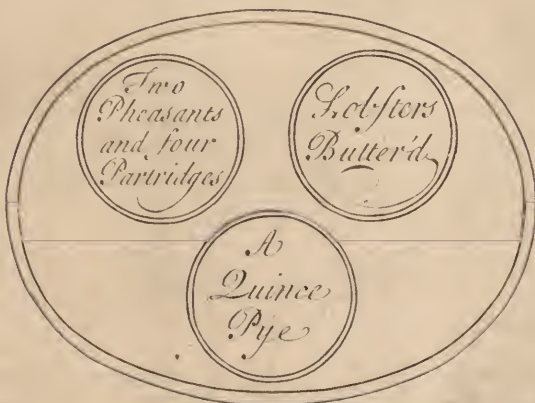 Two
Pheasants
and four
Partridges
Lobsters
Butter'd
A
Quince
Pye